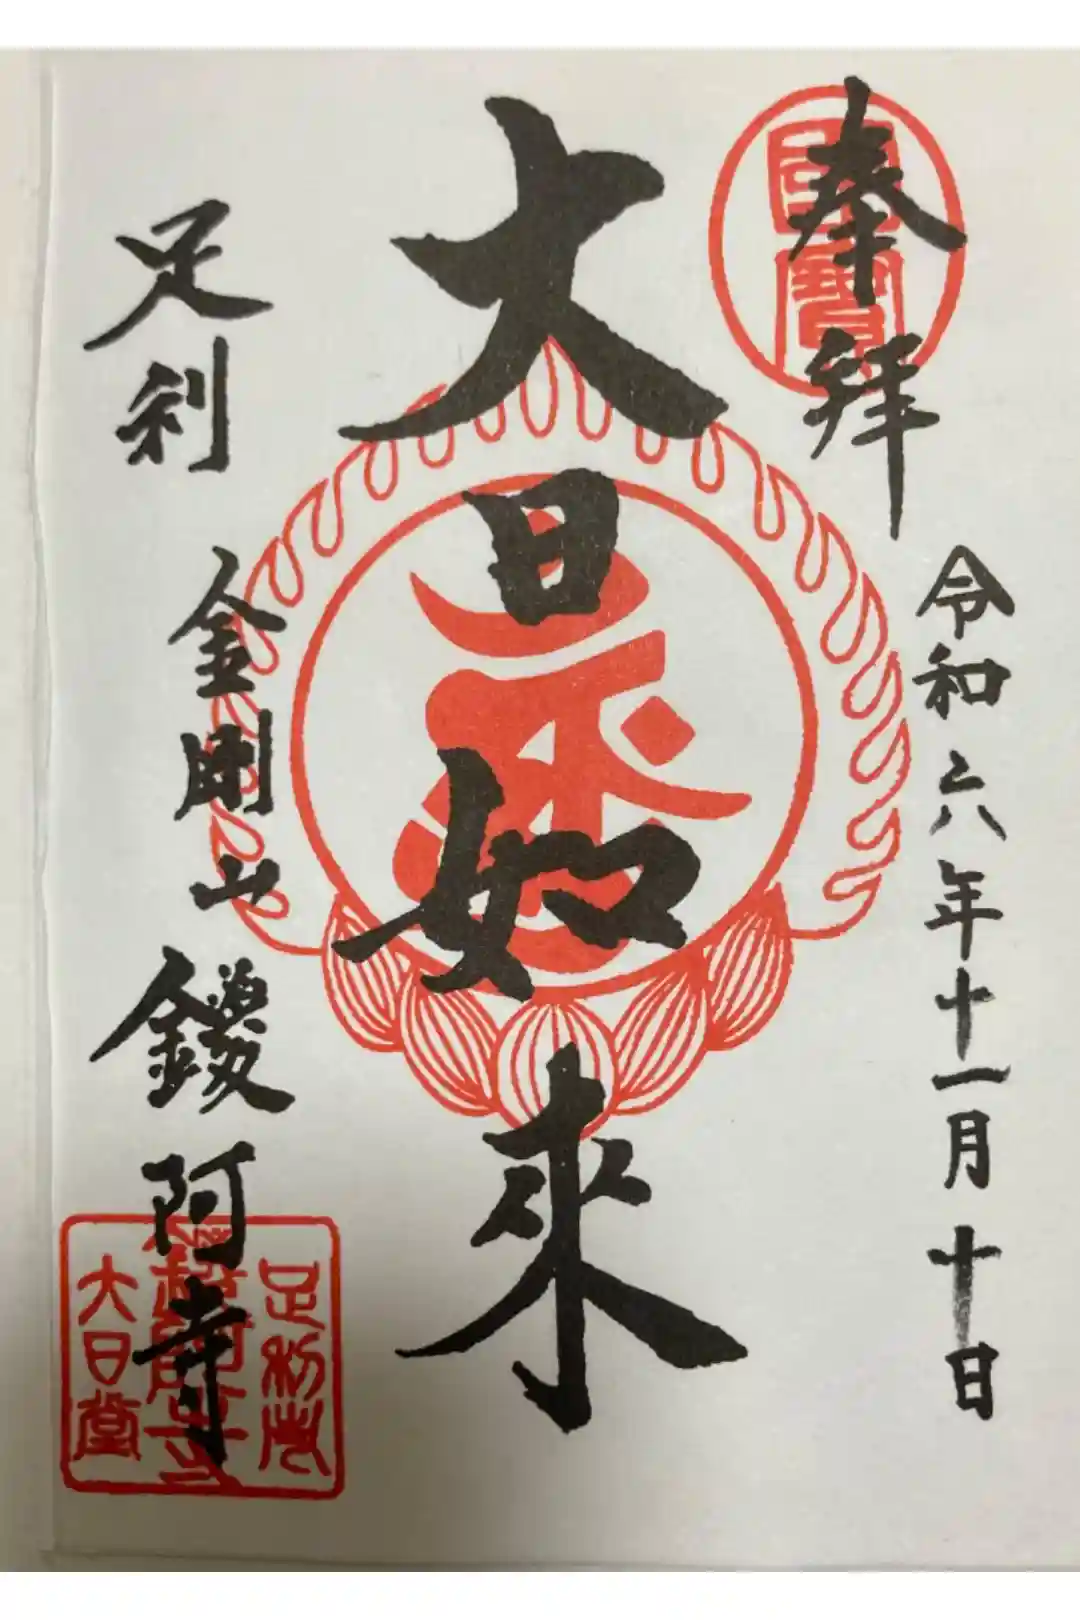 奉拝
國寶
令和六年十一月十日
大日如来
足利
金剛山
鑁阿寺
足利市
鑁阿寺
大日堂